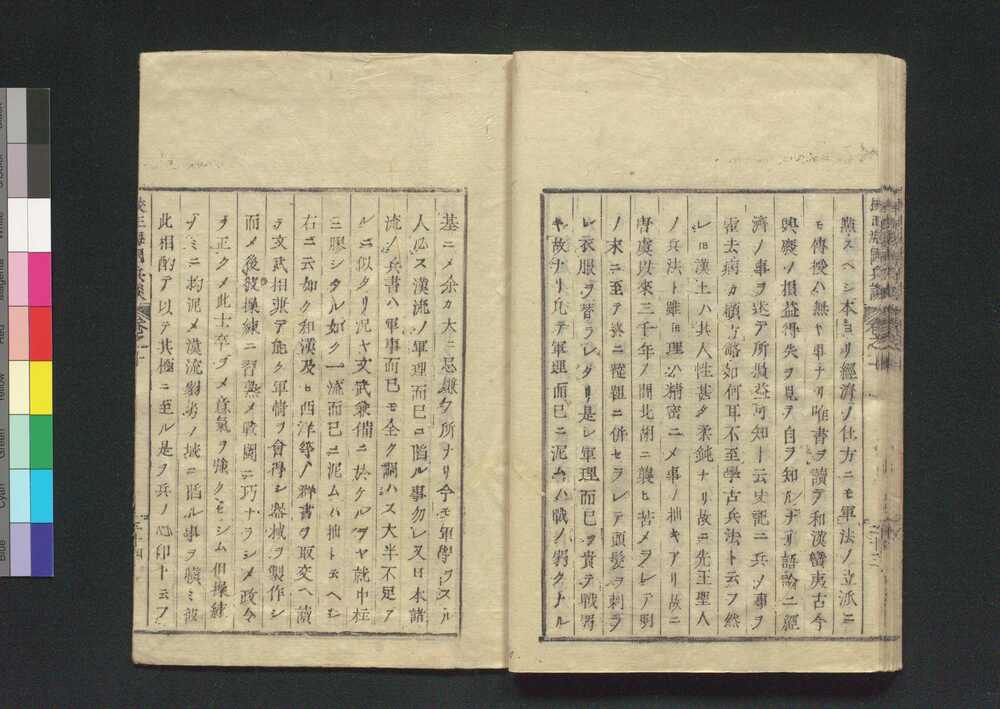 熟スヘシ本ヨリ經濟ノ仕方ニモ軍法ノ立派ニ
モ傳授ハ無キ事ナリ唯書ヲ讀テ和漢蠻夷古今
興廢ノ損益得失ヲ見テ自ヲ知ルナリ語論ニ經
濟ノ事ヲ述テ所損益可知ト云史記ニ兵ノ事ヲ
霍去病カ顧方略如何耳不至學古兵法ト云フ然
レ𪜈漢土ハ其人性甚タ柔鈍ナリ故ニ先王聖人
ノ兵法ト雖𪜈理ハ精密ニメ事ノ拙キアリ故ニ
唐虞以來三千年ノ間北胡ニ襲ヒ苦メラレテ明
ノ末ニ至テ終ニ韃靼ニ併セラレテ頭髮ヲ剃ラ
レ衣服ヲ替ラレタリ是レ軍理而已ヲ貴テ戰弱
キ故ナリ凡テ軍理而已ニ泥ムハ戰ノ弱クナル
基ニメ余カ大ニ忌嫌ク所ナリ今モ軍學ヲスル
人必ス漢流ノ軍理而已ニ陷ル事勿レ又日本諸
流ノ兵書ハ軍事而已モ全ク調ハス大半不足ア
ルニ似タリ況ヤ文武兼備ニ於クルヲヤ就中柱
ニ膠シタル如ク一流而已ニ泥ムハ拙ト云ヘシ
右ニ云如ク和漢及ヒ西洋等ノ群書ヲ取交ヘ讀
テ文武相兼テ能ク軍情ヲ會得シ器械ヲ製作シ
而メ後教操練ニ習熟メ戰鬪ニ巧ナラシメ政令
ヲ正クメ此士卒ヲメ意氣ヲ強クモシム但操練
ノミニ拘泥メ漢流弱劣ノ域ニ陷ル事ヲ愼ミ彼
此相酌テ以テ其極ニ至ル是ヲ兵ノ心印ト云フ